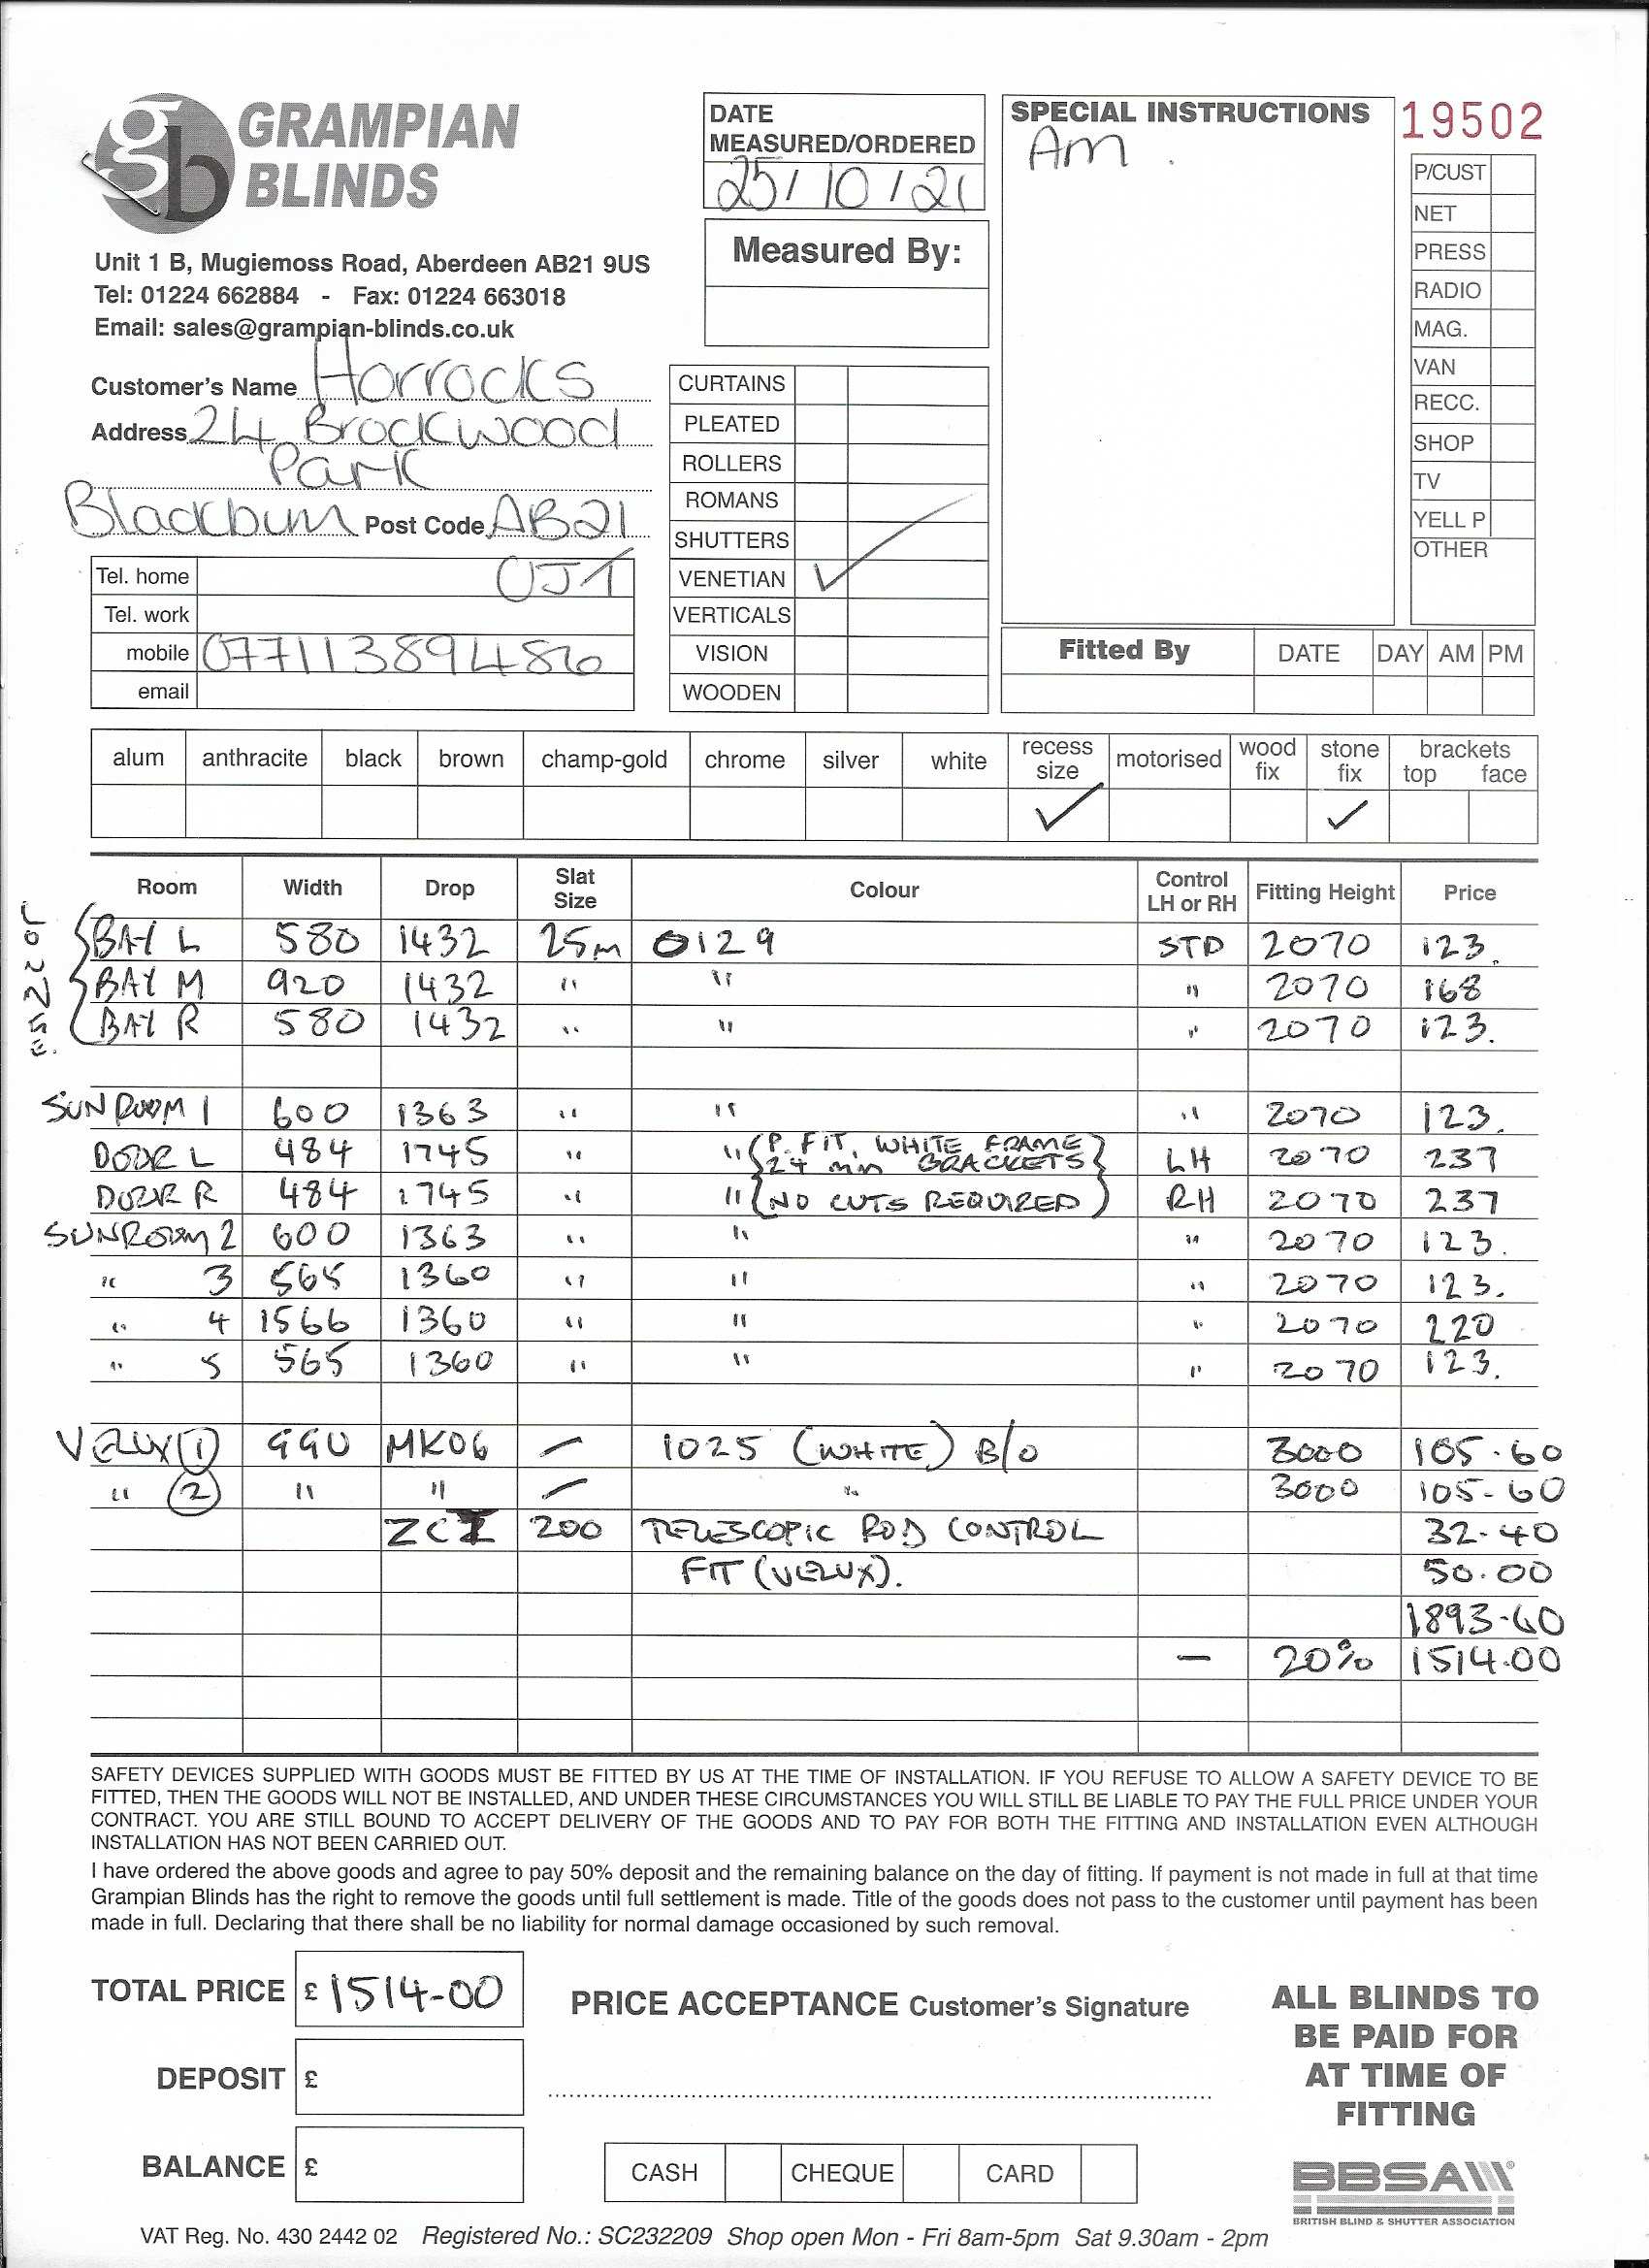 gb GRAMPIAN
BLINDS
Unit 1 B, Mugiemoss Road, Aberdeen AB21 9US
Tel: 01224 662884 - Fax: 01224 663018
Email: sales@grampian-blinds.co.uk
Customer's Name Horrocks
Address 24 Brockwood
Park
Blackburn Post Code AB21
0J1
Tel. home
Tel. work
mobile 07711389486
email
DATE
MEASURED/ORDERED
25/10/21
Measured By:
CURTAINS
PLEATED
ROLLERS
ROMANS
SHUTTERS
VENETIAN ✓
VERTICALS
VISION
WOODEN
SPECIAL INSTRUCTIONS
Am.
19502
P/CUST
NET
PRESS
RADIO
MAG.
VAN
RECC.
SHOP
TV
YELL P
OTHER
Fitted By DATE DAY AM PM
alum anthracite black brown champ-gold chrome silver white recess size motorised wood fix stone fix brackets top face
✓ ✓
Room Width Drop Slat Size Colour Control LH or RH Fitting Height Price
BAY L 580 1432 25m 0129 STD 2070 123.
BAY M 920 1432 " " " 2070 168
BAY R 580 1432 " " " 2070 123.
SUNROOM 1 600 1363 " " " 2070 123.
DOOR L 484 1745 " " (P. FIT, WHITE FRAME 24 mm BRACKETS) LH 2070 237
DOOR R 484 1745 " " (NO CUTS REQUIRED) RH 2070 237
SUNROOM 2 600 1363 " " " 2070 123.
" 3 565 1360 " " " 2070 123.
" 4 1566 1360 " " " 2070 220
" 5 565 1360 " " " 2070 123.
VELUX (1) GGU MK06 - 1025 (WHITE) B/O 3000 105.60
" (2) " " - " 3000 105-60
200 TELESCOPIC ROD CONTROL 32-40
FIT (VELUX). 50.00
1893-60
- 20% 1514.00
SAFETY DEVICES SUPPLIED WITH GOODS MUST BE FITTED BY US AT THE TIME OF INSTALLATION. IF YOU REFUSE TO ALLOW A SAFETY DEVICE TO BE
FITTED, THEN THE GOODS WILL NOT BE INSTALLED, AND UNDER THESE CIRCUMSTANCES YOU WILL STILL BE LIABLE TO PAY THE FULL PRICE UNDER YOUR
CONTRACT. YOU ARE STILL BOUND TO ACCEPT DELIVERY OF THE GOODS AND TO PAY FOR BOTH THE FITTING AND INSTALLATION EVEN ALTHOUGH
INSTALLATION HAS NOT BEEN CARRIED OUT.
I have ordered the above goods and agree to pay 50% deposit and the remaining balance on the day of fitting. If payment is not made in full at that time
Grampian Blinds has the right to remove the goods until full settlement is made. Title of the goods does not pass to the customer until payment has been
made in full. Declaring that there shall be no liability for normal damage occasioned by such removal.
TOTAL PRICE £ 1514-00
DEPOSIT £
BALANCE £
PRICE ACCEPTANCE Customer's Signature
CASH CHEQUE CARD
ALL BLINDS TO
BE PAID FOR
AT TIME OF
FITTING
BBSA
BRITISH BLIND & SHUTTER ASSOCIATION
VAT Reg. No. 430 2442 02 Registered No.: SC232209 Shop open Mon - Fri 8am-5pm Sat 9.30am - 2pm